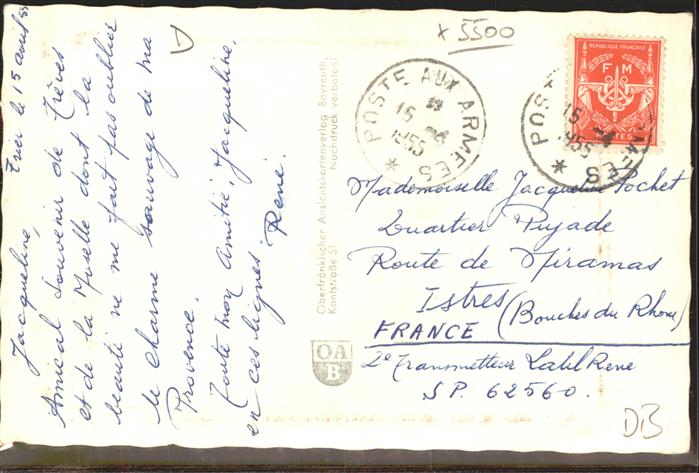 Trier le 15 avril 55
Jacqueline,
Amical souvenir de Trèves
et de la Moselle dont la
beauté ne me fait pas oublier
le charme sauvage de ma
Provence.
Toute mon Amitié, Jacqueline,
en ces lignes. René.
Oberfränkischer Ansichtskartenverlag Bayreuth,
Kantstraße 51 Nachdruck verboten!
OA
B
x 5500
POSTE AUX ARMEES
15 -4
1955
REPUBLIQUE FRANÇAISE
F M
POSTES
POSTE AUX ARMEES
15 -4
1955
Mademoiselle Jacqueline Pochet
Quartier Pujade
Route de Miramas
Istres (Bouches du Rhône)
FRANCE
2e Transmetteur René
S.P. 62560.
DB